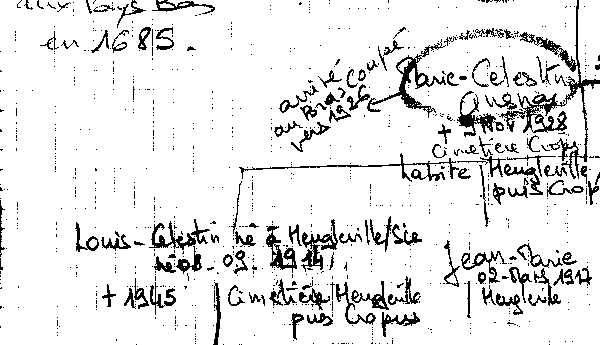 aux Pays Bas
en 1685.
arrité
au Bras Coupé
vers 1926
Marie-Celestin
Quenot
+ 9 Nov 1928
Cimetière Crop
habite Heugleville
puis Crop
Louis-Celestin né à Heugleville/Scie
né 08-09-1914
+ 1945 Cimetière Heugleville
puis Cropus
Jean-Marie
02-Mars 1917
Heugleville